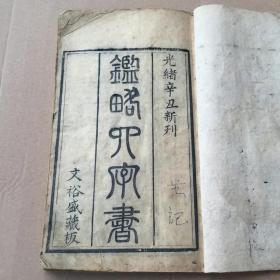 光緒辛丑新刊
鑑略四字書
文裕盛藏板